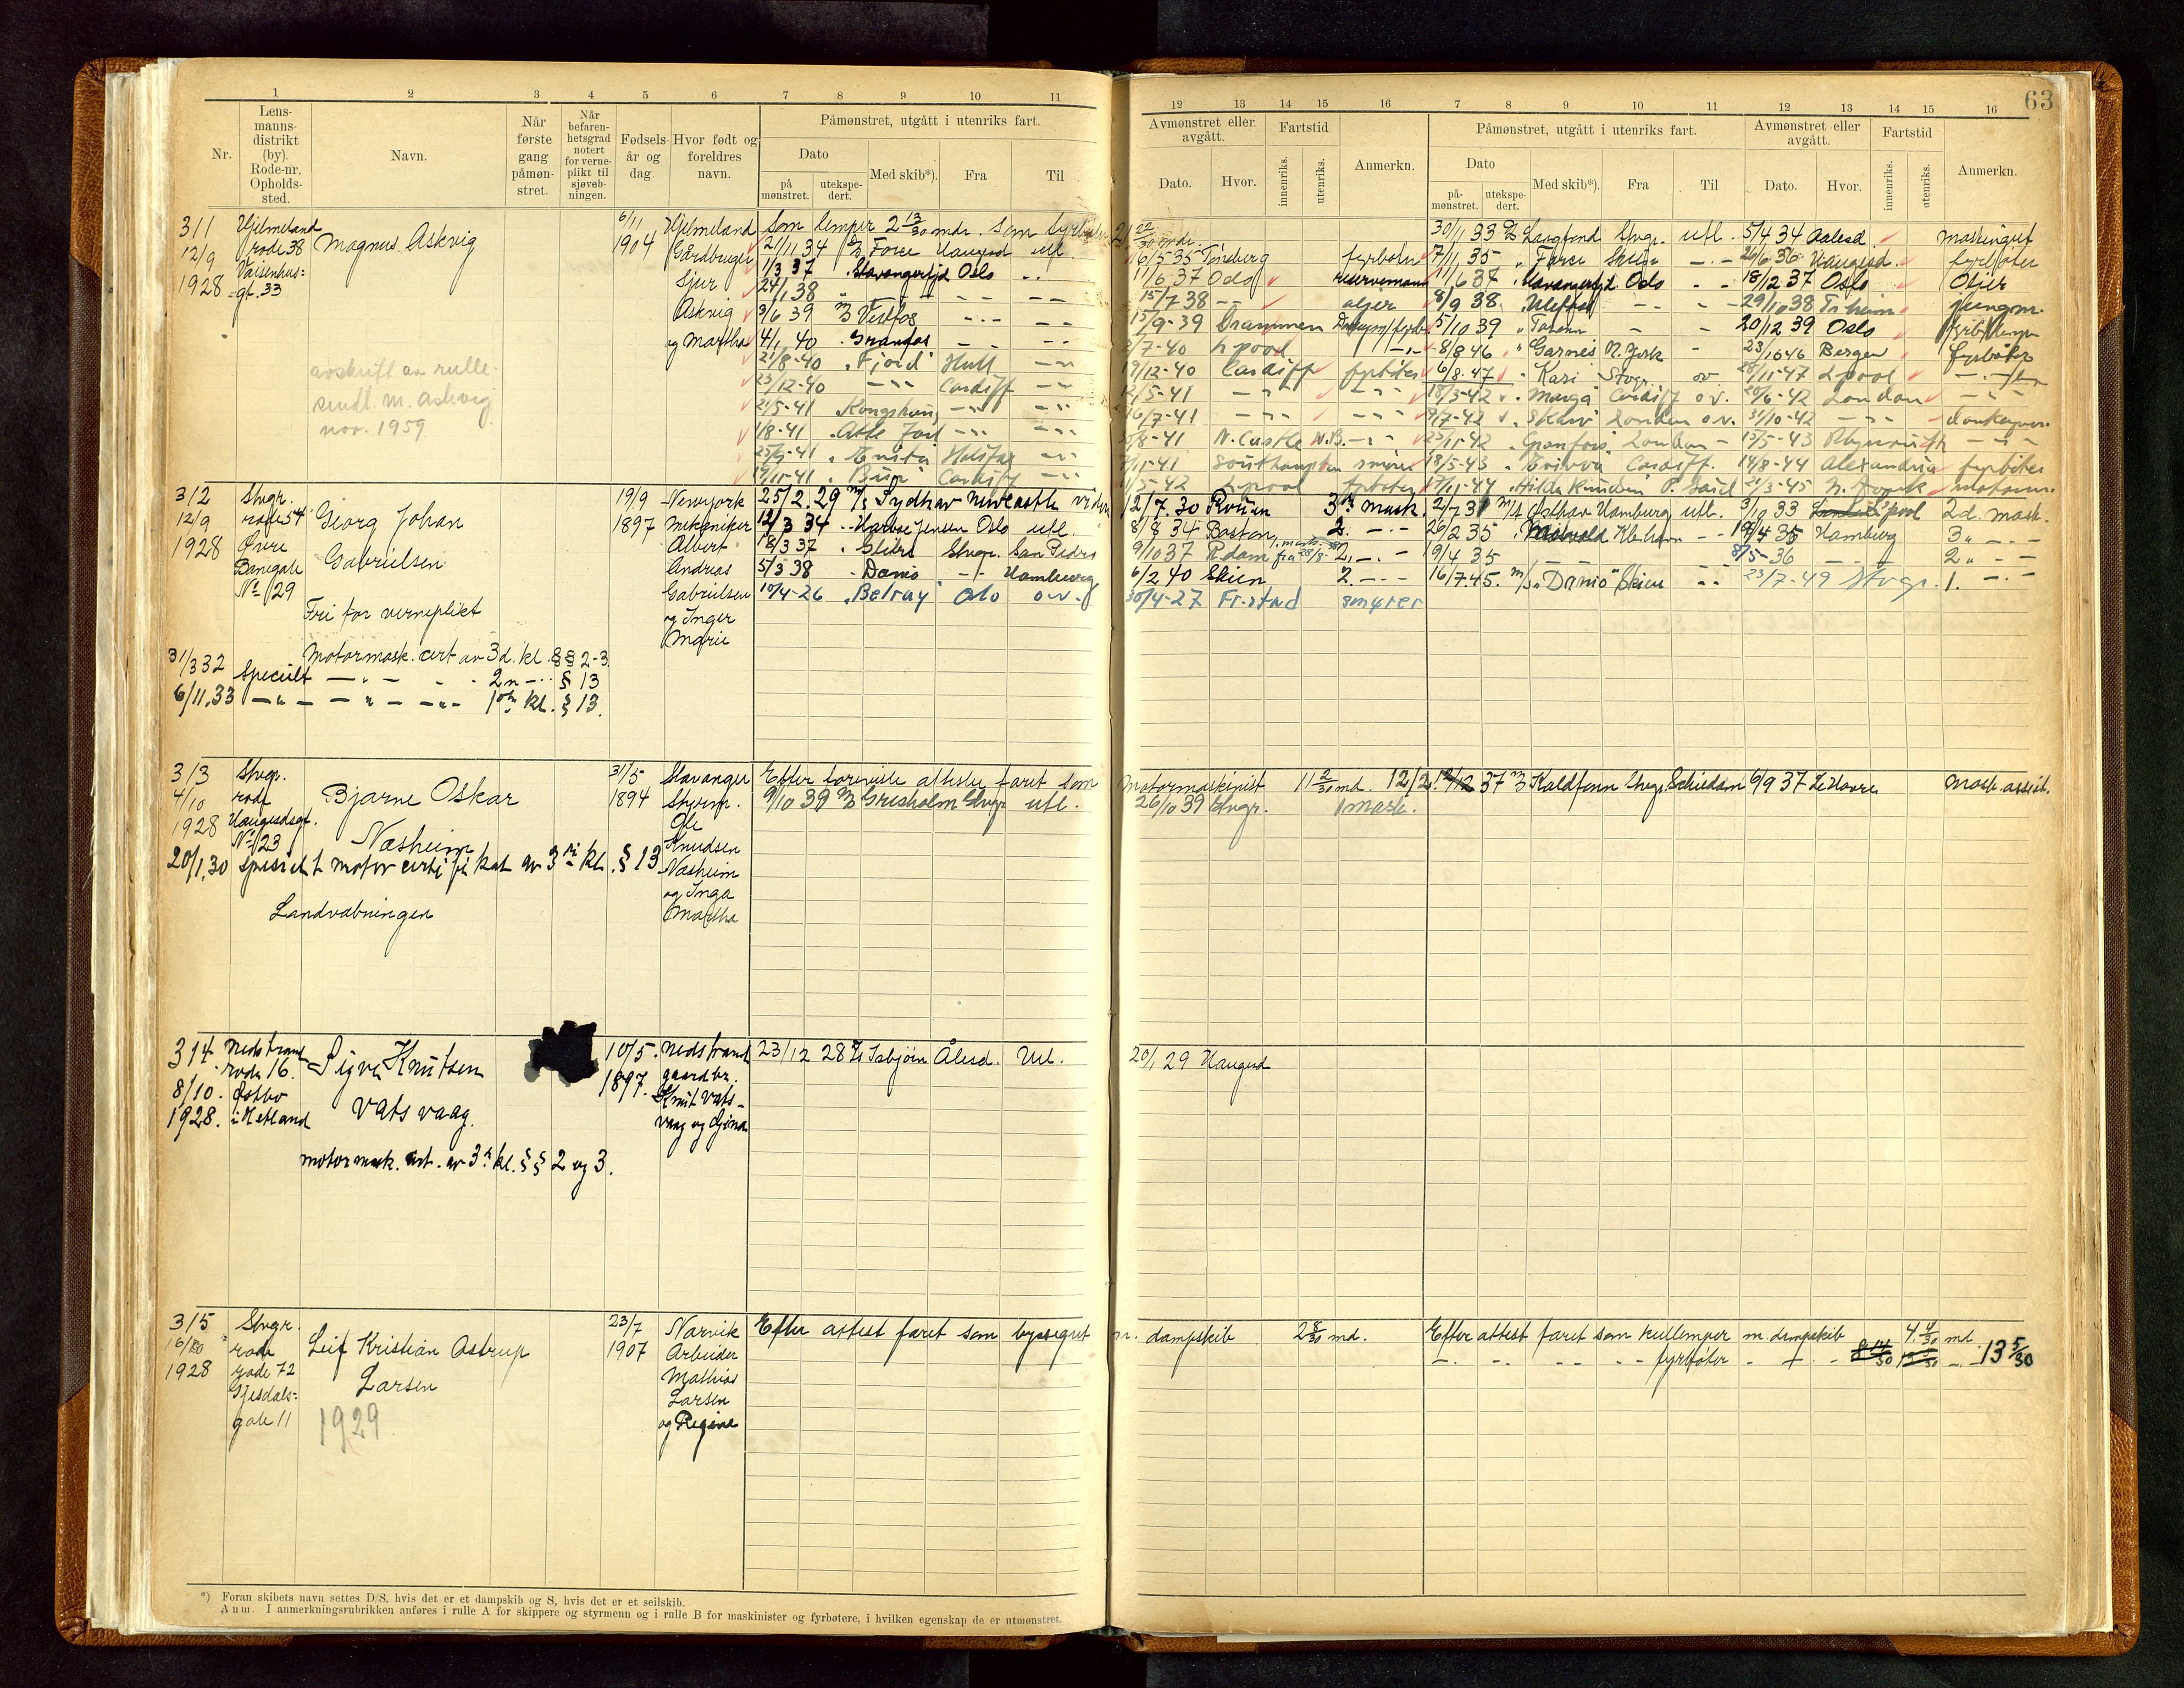 63
1 2 3 4 5 6 7 8 9 10 11
12 13 14 15 16 7 8 9 10 11 12 13 14 15 16
Nr.
Lens-
manns-
distrikt
(by).
Rode-nr.
Opholds-
sted.
Navn.
Når
første
gang
påmøn-
stret.
Når
befaren-
hetsgrad
notert
for verne-
plikt til
sjøveb-
ningen.
Fødsels-
år og
dag.
Hvor født og
foreldres
navn.
Påmønstret, utgått i utenriks fart.
Dato
på
mønstret.
utekspe-
dert.
Med skib*).
Fra
Til
Avmønstret eller
avgått.
Dato.
Hvor.
Fartstid
innenriks.
utenriks.
Anmerkn.
Påmønstret, utgått i utenriks fart.
Dato
på-
mønstret.
utekspe-
dert.
Med skib*).
Fra
Til
Avmønstret eller
avgått.
Dato.
Hvor.
Fartstid
innenriks.
utenriks.
Anmerkn.
311
12/9
1928
Hjelmeland
rode 38
Vaisenhus=
gt. 33
Magnus Askvig
avskrift av rulle
sendt M. Askvig
nov. 1959
6/11
1904
Hjelmeland
Gårdbruger
Sjur
Askvig
og Martha
Som lemper 2 13/30 mdr. som fyrbøter
21/11 34 D/S Force Haugesd utl.
1/3 37 Stavangerfjd Oslo
24/1 38
3/6 39 Vestfos
4/1 40 Granfos
21/8-40 "Fjord" Hull
23/12-40 Cardiff
21/5-41 Kongshaug
1/8-41 Atle Jarl
25/9-41 Halifax
19/11-41 Cardiff
22/30 mdr.
16/5 35 Tønsberg fyrbøter
11/6 37 Oslo reservemann
15/7 38 oljer
15/9-39 Drammen
7-40 L pool
17/12-40 Cardiff fyrbøter
12/5-41
16/7-41
8-41 N. Castle
11-41 Southampton smører
5-42 L pool fyrbøter
30/1 33 D/S Langfond Stvgr. utl. 5/4 34 Aalesd. maskingut
7/11 35 Force Skien 29/6 36 Haugesd. fyrbøter
11/6 37 Stavangerfjd. Oslo 18/12 37 Oslo Oljer
8/9 38 Ulefos 29/10 38 Tr.heim jungm.
5/10 39 20/12 39 Oslo
8/8 46 Garnes N. York 23/10 46 Bergen fyrbøter
6/8-47 Kari Stvgr. ov. 28/11-47 L pool
18/3-42 Marga Cardiff o.v. 20/6-42 London
9/7-42 "Skarv" London o.v. 31/10-42 donkeym.
23/11-42 Granfoss London 13/5-43
18/5-43 Cardiff. 14/8-44 Alexandria fyrbøter
17/11-44 Hilda Knudsen P. Said 21/3-45 N. York motorm.
312
12/9
1928
Stvgr.
rode 54
Øvre
Banegate
No 29
Georg Johan
Gabrielsen
Fri for verneplikt
19/9
1897
Newyork
Mekaniker
Albert
Andreas
Gabrielsen
og Inger
Marie
31/3 32 Motormask. cert av 3d. kl. §§ 2-3
Specielt 2n § 13
6/11.33 1ste kl. § 13.
25/2.29 M/S Sydhav Newcastle viden
12/3 34 Harboe Jensen Oslo utl.
18/3 37 Glitre Stvgr. San Pedro
5/3 38 Danio Hamburg
10/4-26 "Belray" Oslo o.v.
12/7.30 Rouen 3dj mask.
8/8 34 Boston, 2.
9/10 37 R.dam 2.
6/2 40 Skien 2.
30/4-27 Fr.stad smører
2/7 31 M/S Østhav Hamburg utl. 3/10 33 L pool 2d. mask.
26/2 35 Kbhavn 19/4 35 Hamburg 3
19/4 35 8/5-36 2
16/7 45. M/S "Danio" Skien 23/7-49 Stvgr. 1.
313
4/10
1928
Stvgr.
rode
Haugesdsgt.
No 23
Bjarne Oskar
Næsheim
20/1.30 Spesielt motor certifikat av 3dje kl. § 13
Landvæbningen
31/5
1894
Stavanger
Styrm.
Ole
Knudsen
Næsheim
og Inga
Martha
Efter foreviste attester faret som motormaskinist 11 2/30 md.
9/10 39 Grisholm Stvgr utl. 26/10 39 Stvgr. 1 mask.
37 Kaldfonn Stvgr. Schiedam 6/9 37 Le Havre Mask. assist.
314
8/10.
1928.
Nedstrand
rode 16.
Østbø
i Hetland
Sigve Knutsen
Vatsvaag.
motormask. cert. av 3. kl. §§ 2 og 3.
10/5.
1897.
Nedstrand
gaardbr.
Knut Vats-
vaag og Gjina
23/12 28 D/S Isbjørn Ålesd. Utl.
20/1 29 Haugesd
315
16/10
1928
Stvgr.
rode
rode 72
Gjesdals=
gate 11
Leif Kristian Astrup
Larsen
1929
23/7
1907
Narvik
Arbeider
Mathias
Larsen
og Regine
Efter attest faret som byssegut m. dampskib 2 8/30 md.
Efter attest faret som kullemper m. dampskib 4. 4/30 md.
fyrbøter 13 5/30
*) Foran skibets navn settes D/S, hvis det er et dampskib og S, hvis det er et seilskib.
Anm. I anmerkningsrubrikken anføres i rulle A for skippere og styrmenn og i rulle B for maskinister og fyrbøtere, i hvilken egenskap de er utmønstret.